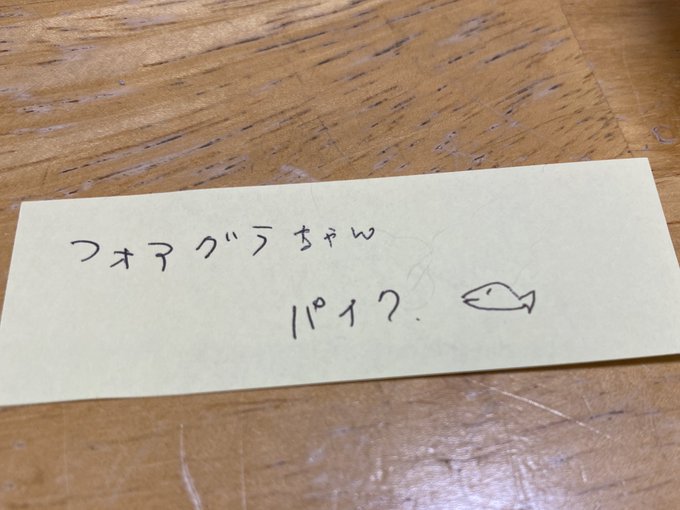 フォアグラちゃん
パイク.